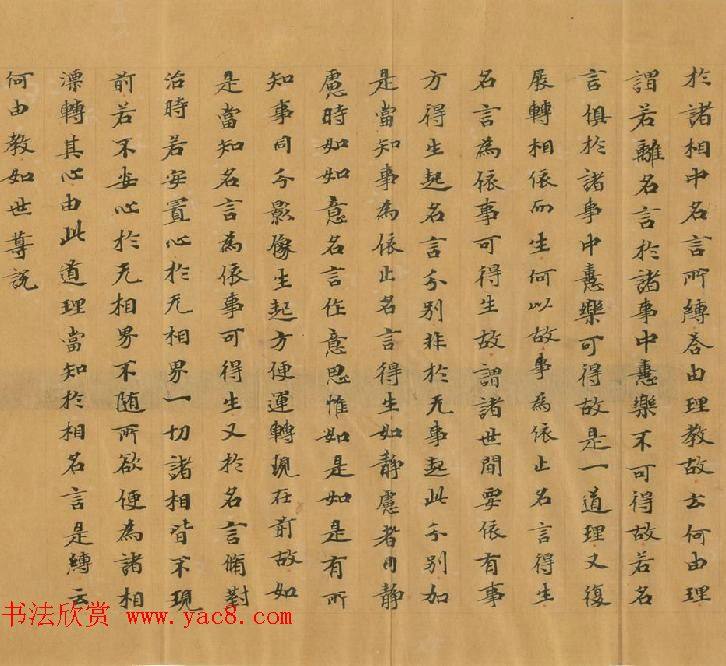 於諸相中名言所縛答由理教故云何由理
謂若離名言於諸事中憙樂不可得故若名
言俱於諸事中憙樂可得故是一道理又復
展轉相依而生何以故事為依止名言得生
名言為依事可得生故謂諸世間要依有事
方得生起名言分別非於无事起此分別加
是當知事為依止名言得生如靜慮者內靜
慮時如如意名言作意思惟如是如是有所
知事同分影像生起方便運轉現在前故如
是當知名言為依事可得生又於名言俻對
治時若安置心於无相界一切諸相皆不現
前若不安心於无相界不随所欲便為諸相
漂轉其心由此道理當知於相名言是縛云
何由教如世尊説
书法欣赏 www.yac8.com